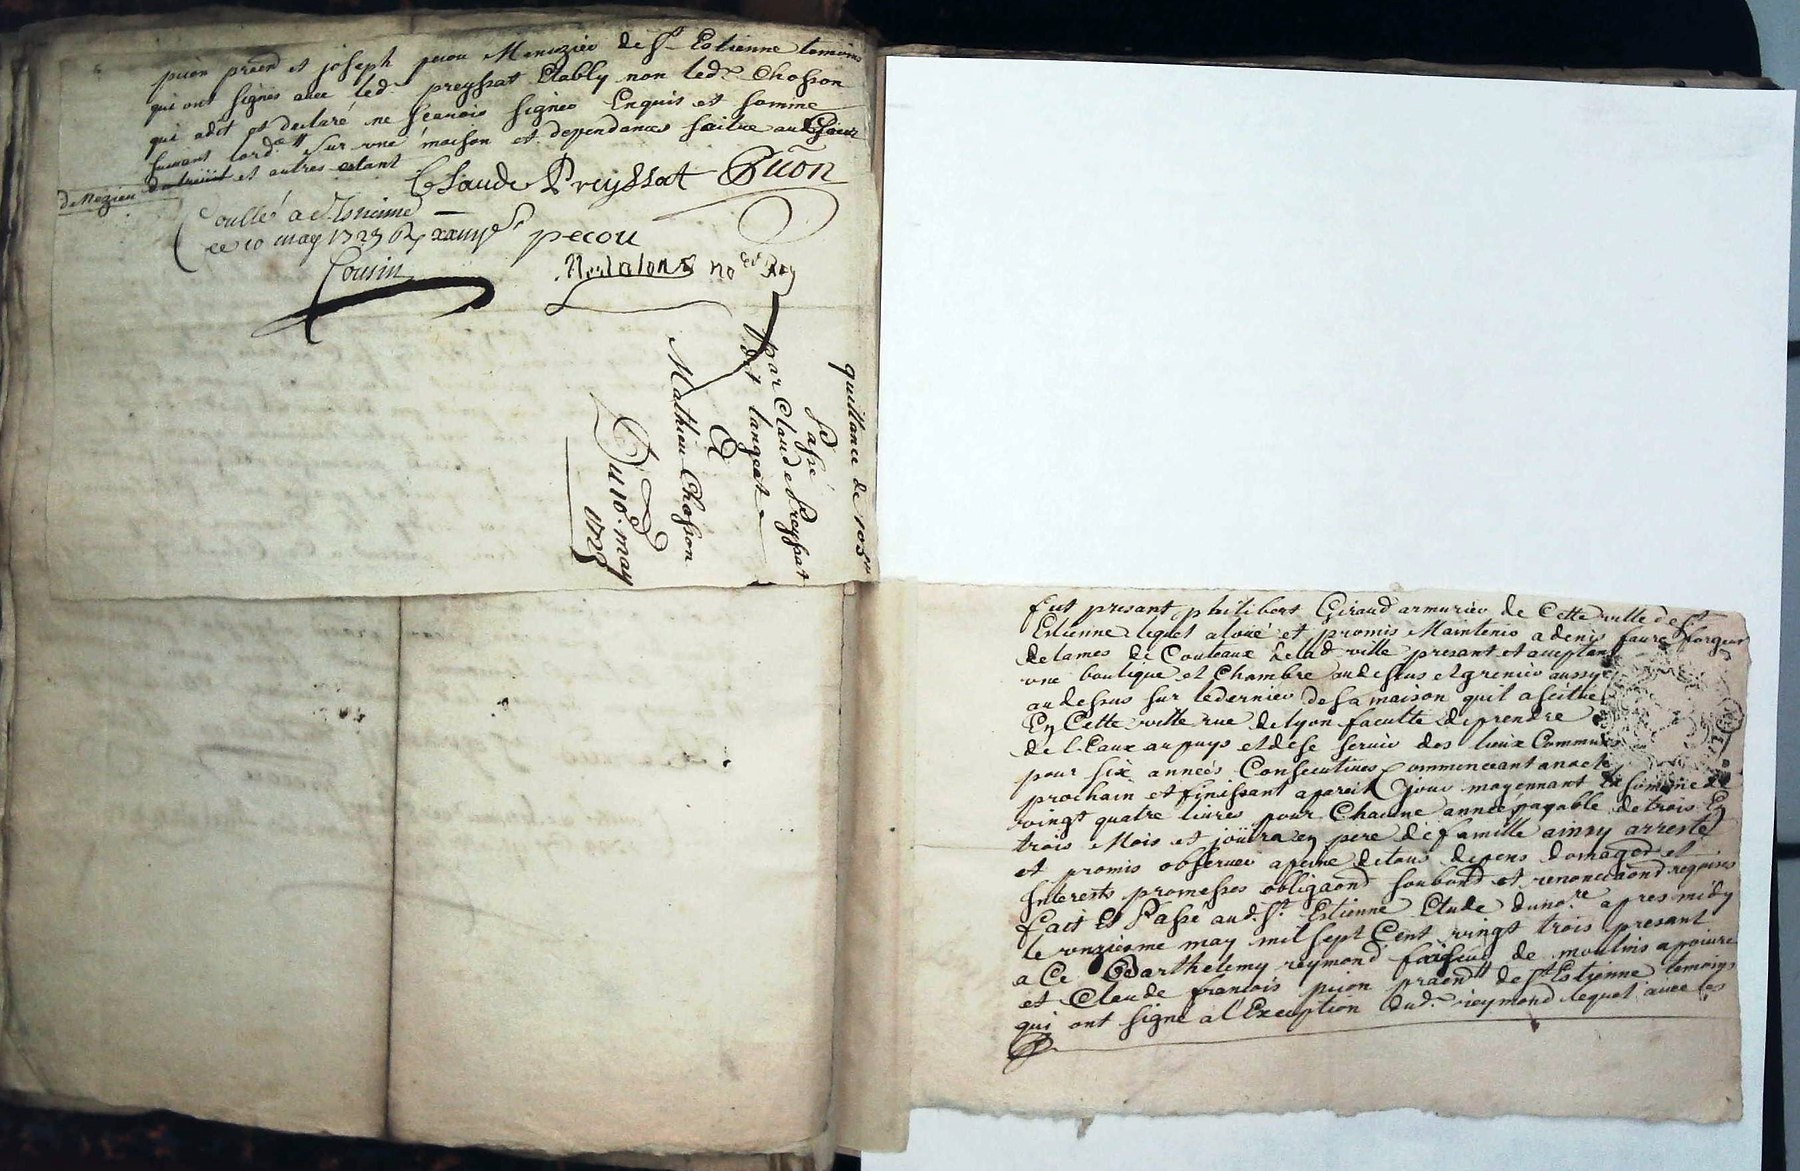 puon præend et joseph pecou Menuzier de St Estienne temoins
qui ont signés avec led. preyssat Etably non led. Chosson
qui a dit et declaré ne sçavoir signer Enquis et somme
suivant lord. sur une maison et dependances scitue aud.
de Mezieu et autres estant
Claude Preyssat Puon
Coullé a St Estienne
ce 10 may 1723
pecou
Cousin
no Roy
quittance de 103
Passé
par Claude Preyssat
dit langeat
&
Mathieu Chosson
Du 10. may
1723
fut presant philibert Giraud armurier de Cette ville de St
Estienne lequel a loué et promis Maintenir a denis faure forgeur
de lames de Couteaux de lad ville presant et acceptant
une boutique et Chambre au dessus et grenier aussy
au dessus sur le dernier de sa maison quil a scitue
En Cette ville rue de lyon faculte de prendre
de l'Eaux au puys et de se servir des lieux Communs
pour six années Consecutives Commencant
prochain et finissant a pareil jour moyennant la somme de
vingt quatre livres pour Chacune année payable de trois En
trois Mois et jouira en pere de famille ainsy arresté
et promis observer a peine de tous depens domages et
Interests promesses obligaond soubond et renonciaond requises
fait Et Passé aud. St Estienne Etude du nore apres midy
le onzieme may mil sept Cent vingt trois presant
a Ce Barthelemy reymond faiseur de moulins a poivre
et Claude francois puon præend de St Estienne temoins
qui ont signé a l'Exception dud. reymond lequel avec les